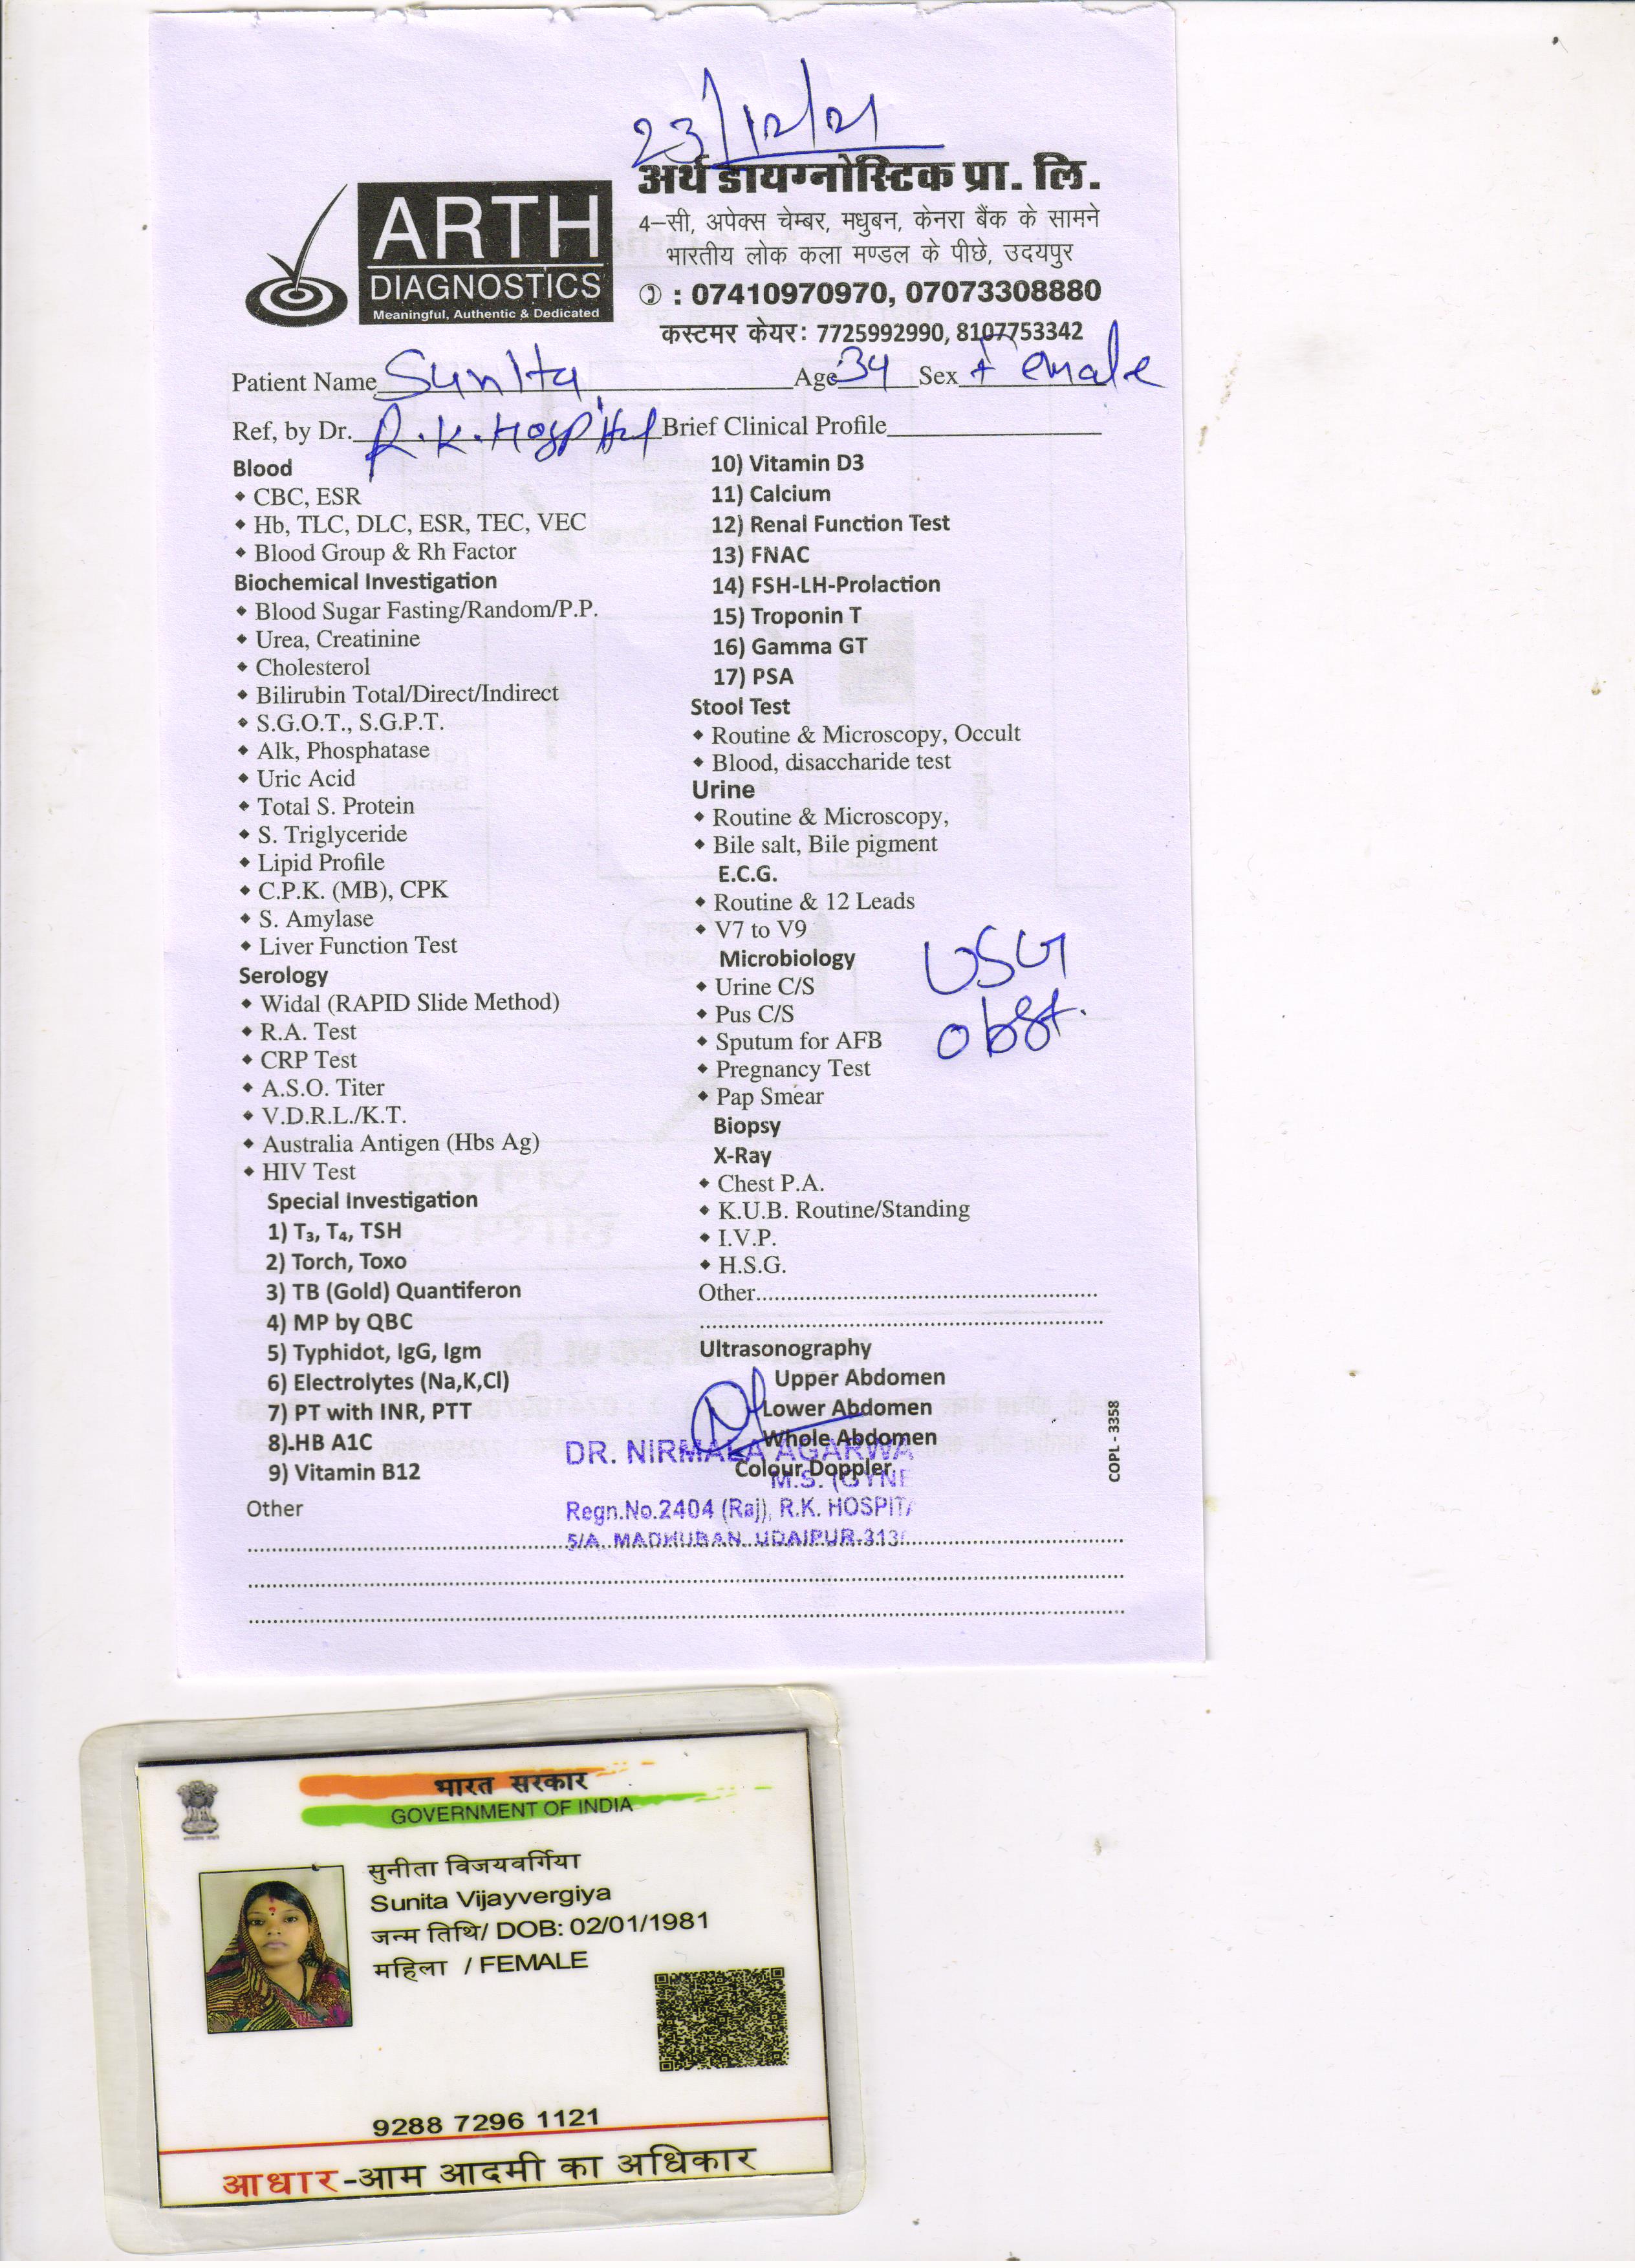 23/12/21
अर्थ डायग्नोस्टिक प्रा. लि.
4-सी, अपेक्स चेम्बर, मधुबन, केनरा बैंक के सामने
भारतीय लोक कला मण्डल के पीछे, उदयपुर
: 07410970970, 07073308880
कस्टमर केयर: 7725992990, 8107753342
ARTH
DIAGNOSTICS
Meaningful, Authentic & Dedicated
Patient Name Sunita Age 34 Sex Female
Ref, by Dr. R.K. Hospital Brief Clinical Profile
Blood
CBC, ESR
Hb, TLC, DLC, ESR, TEC, VEC
Blood Group & Rh Factor
Biochemical Investigation
Blood Sugar Fasting/Random/P.P.
Urea, Creatinine
Cholesterol
Bilirubin Total/Direct/Indirect
S.G.O.T., S.G.P.T.
Alk, Phosphatase
Uric Acid
Total S. Protein
S. Triglyceride
Lipid Profile
C.P.K. (MB), CPK
S. Amylase
Liver Function Test
Serology
Widal (RAPID Slide Method)
R.A. Test
CRP Test
A.S.O. Titer
V.D.R.L./K.T.
Australia Antigen (Hbs Ag)
HIV Test
Special Investigation
1) T₃, T₄, TSH
2) Torch, Toxo
3) TB (Gold) Quantiferon
4) MP by QBC
5) Typhidot, IgG, Igm
6) Electrolytes (Na,K,Cl)
7) PT with INR, PTT
8).HB A1C
9) Vitamin B12
Other
10) Vitamin D3
11) Calcium
12) Renal Function Test
13) FNAC
14) FSH-LH-Prolaction
15) Troponin T
16) Gamma GT
17) PSA
Stool Test
Routine & Microscopy, Occult
Blood, disaccharide test
Urine
Routine & Microscopy,
Bile salt, Bile pigment
E.C.G.
Routine & 12 Leads
V7 to V9
Microbiology
Urine C/S
Pus C/S
Sputum for AFB
Pregnancy Test
Pap Smear
USG
obst.
Biopsy
X-Ray
Chest P.A.
K.U.B. Routine/Standing
I.V.P.
H.S.G.
Other
Ultrasonography
Upper Abdomen
Lower Abdomen
Whole Abdomen
Colour Doppler
COPL - 3358
DR. NIRMALA AGARWA
M.S. (GYNE
Regn.No.2404 (Raj), R.K. HOSPITA
5/A, MADHUBAN, UDAIPUR-313
भारत सरकार
GOVERNMENT OF INDIA
सुनीता विजयवर्गिया
Sunita Vijayvergiya
जन्म तिथि/ DOB: 02/01/1981
महिला / FEMALE
9288 7296 1121
आधार-आम आदमी का अधिकार